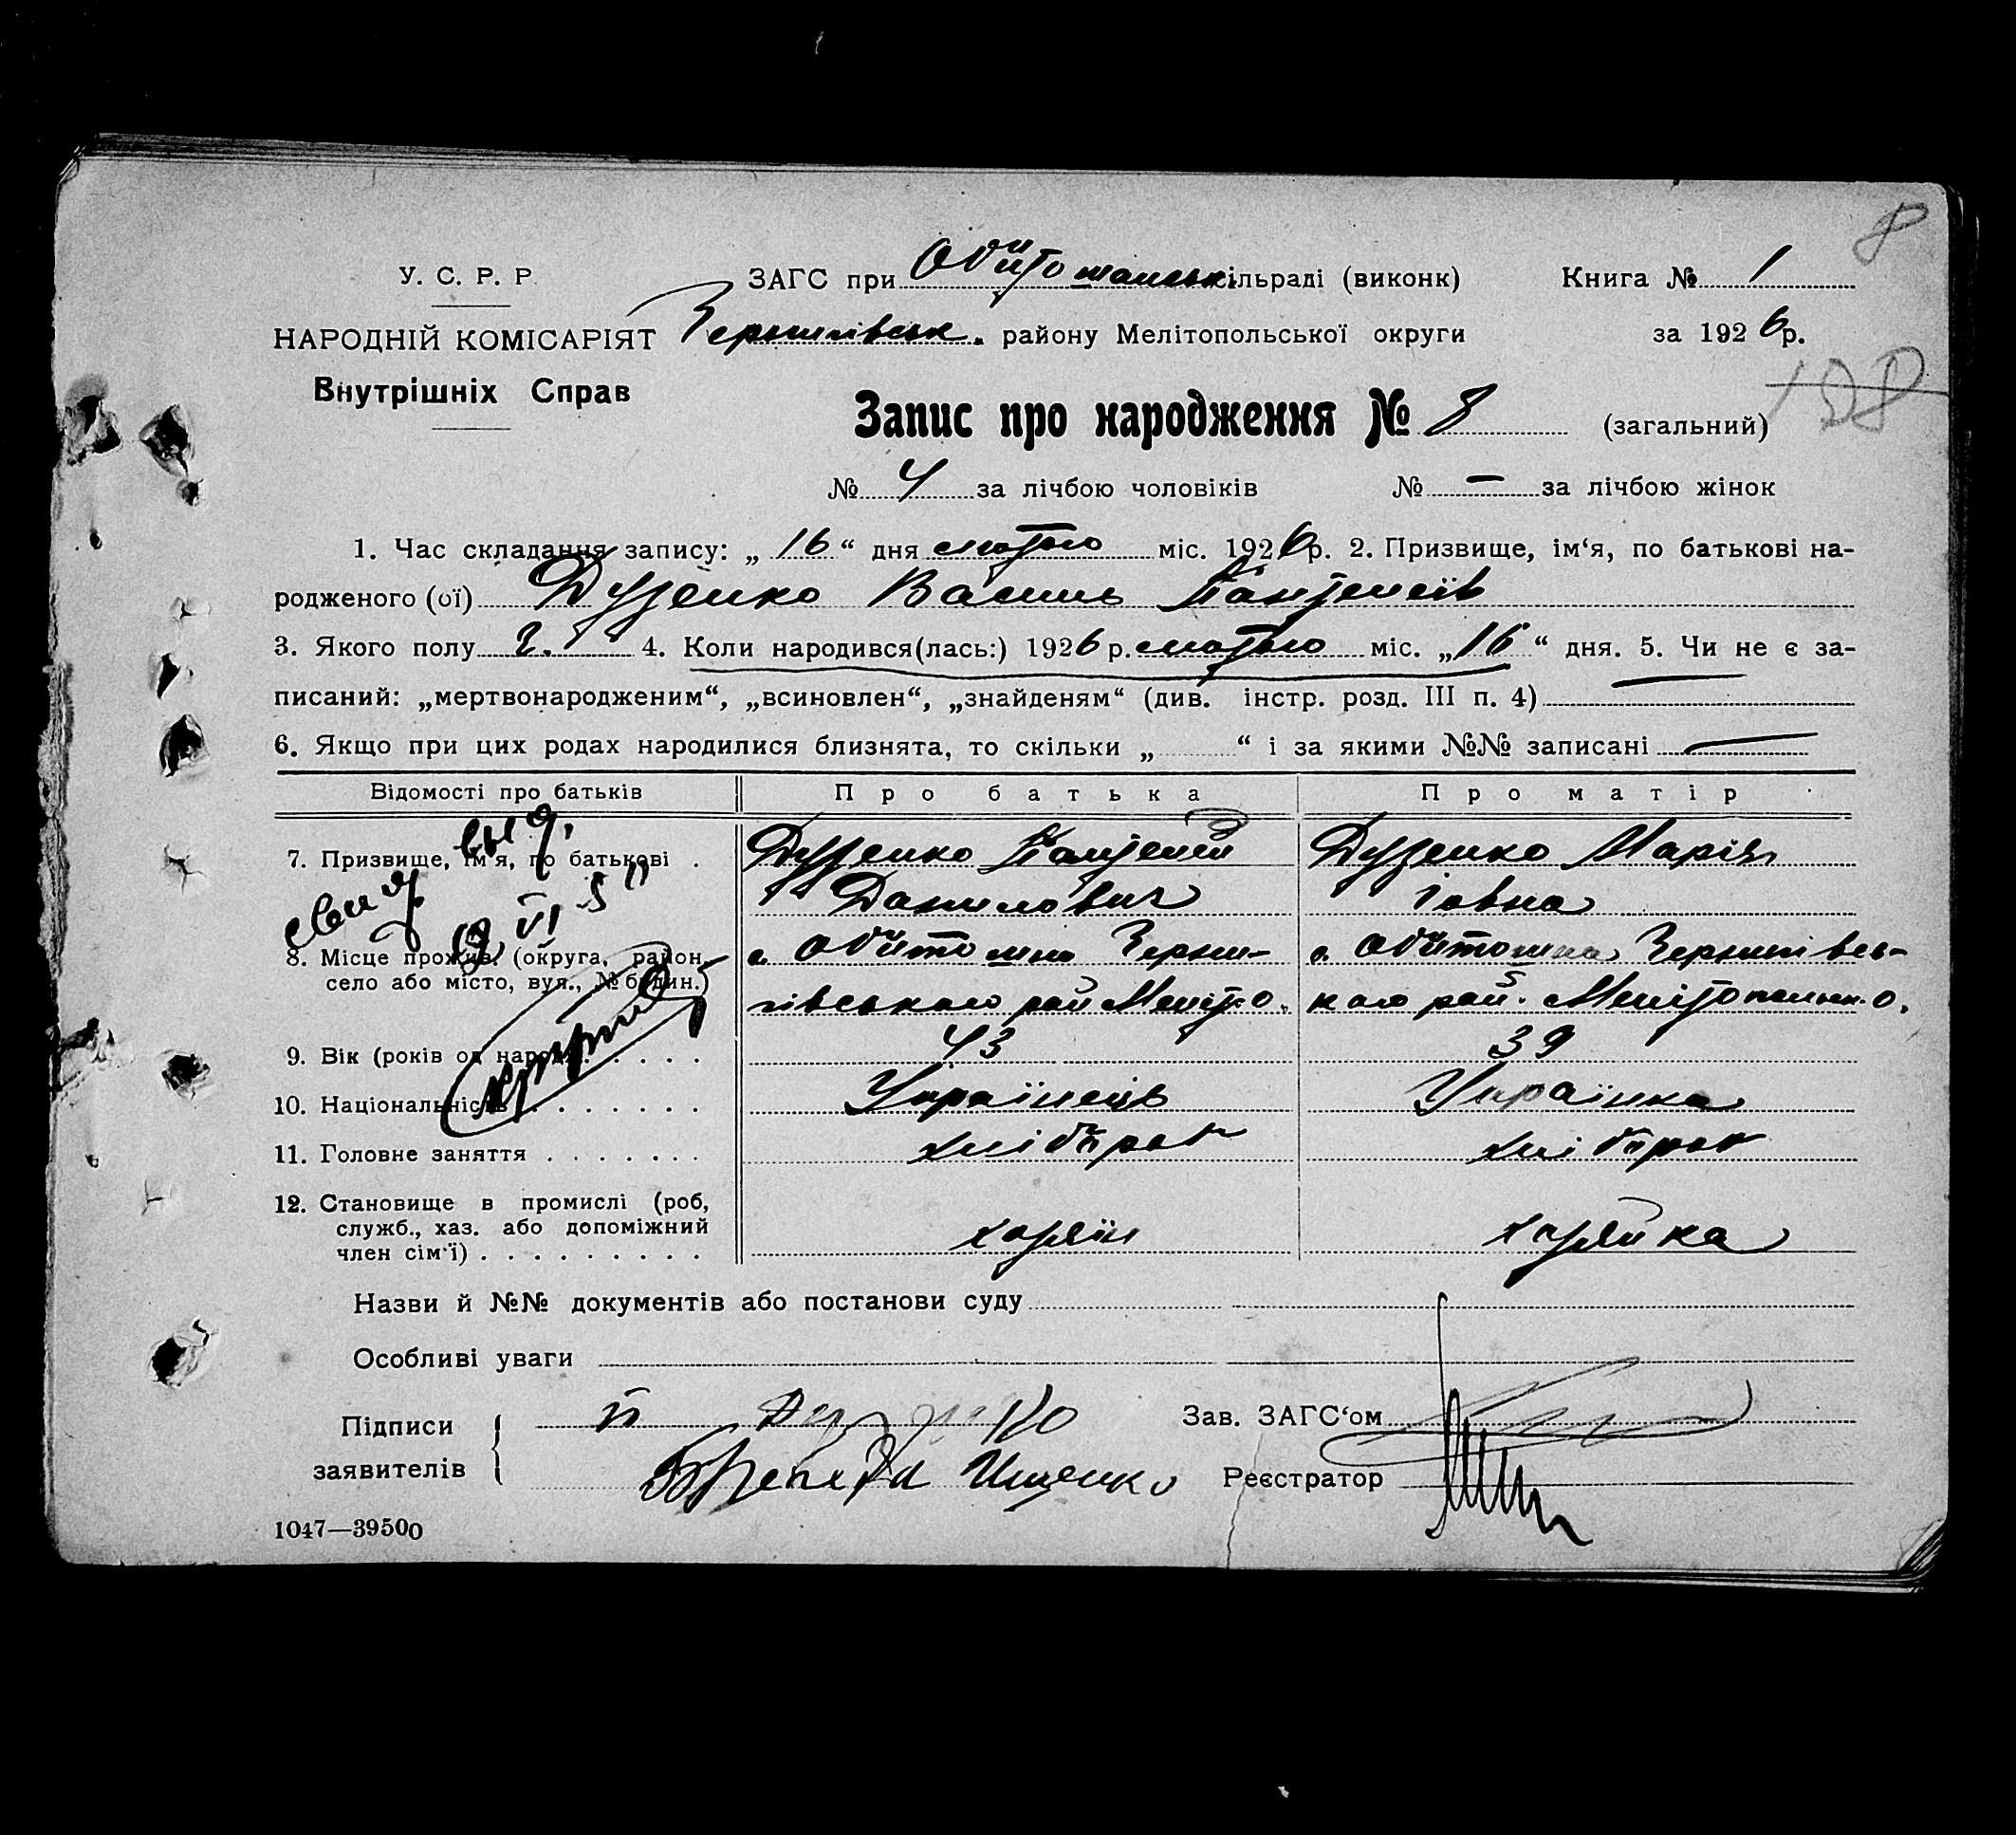 8
У. С. Р. Р
ЗАГС при Обитошанськ. сільраді (виконк) Книга № 1
НАРОДНІЙ КОМІСАРІЯТ
района Мелітопольської округи за 1926 р.
Внутрішніх Справ
Запис про народження № 8 (загальний)
№ 4 за лічбою чоловіків № — за лічбою жінок
1. Час складання запису: „ 16 “ дня лютого міс. 1926 р. 2. Призвище, ім‘я, по батькові на-
родженого (ої) Дузенко Василь Пантелеїв
3. Якого полу ч. 4. Коли народився(лась:) 1926 р. лютого міс. „ 16 “ дня. 5. Чи не є за-
писаний: „мертвонародженим“, „всиновлен“, „знайденям“ (див. інстр. розд. III п. 4) —
6. Якщо при цих родах народилися близнята, то скільки „ “ і за якими №№ записані —
Відомості про батьків Про батька Про матір
7. Призвище, ім‘я, по батькові . Дузенко Пантелей Дузенко Марія
Данилович Іовна
8. Місце прожив. (округа, район, с. Обитошна с. Обитошна
село або місто, вул., № будин.) рай Меліт. о. рай. Мелітопольськ. о.
9. Вік (років од народ.) . . . . . 43 39
10. Національність . . . . . . . Українець Українка
11. Головне заняття . . . . . . . хлібороб хлібороб
12. Становище в промислі (роб,
служб., хаз. або допоміжний хазяїн хазяйка
член сім‘ї) . . . . . . . . .
Назви й №№ документів або постанови суду
Особливі уваги
Підписи П Дузенко Зав. ЗАГС‘ом
заявителів Ищенко Реєстратор
1047—39500